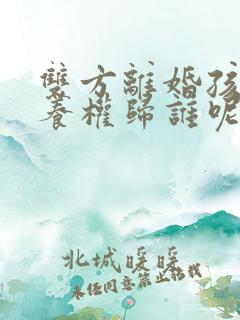 雙方離婚孩
養權歸誰呢
北城暖暖
未任同意禁止轉載